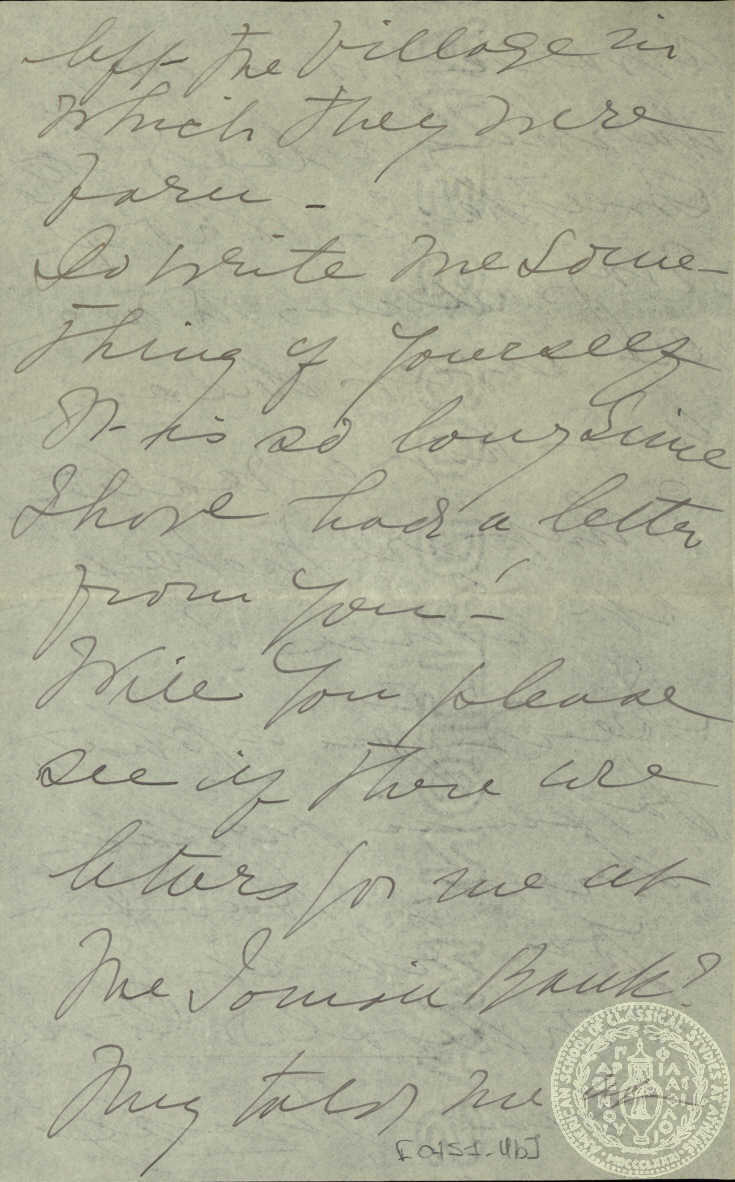 left the Village in
which they were
born -
Do write me some-
thing of yourself
It is so long since
I have had a letter
from you! -
Will you please
see if there are
letters for me at
the Ionian Bank?
They told me
AMERICAN SCHOOL OF CLASSICAL STUDIES AT ATHENS
MDCCCLXXXI